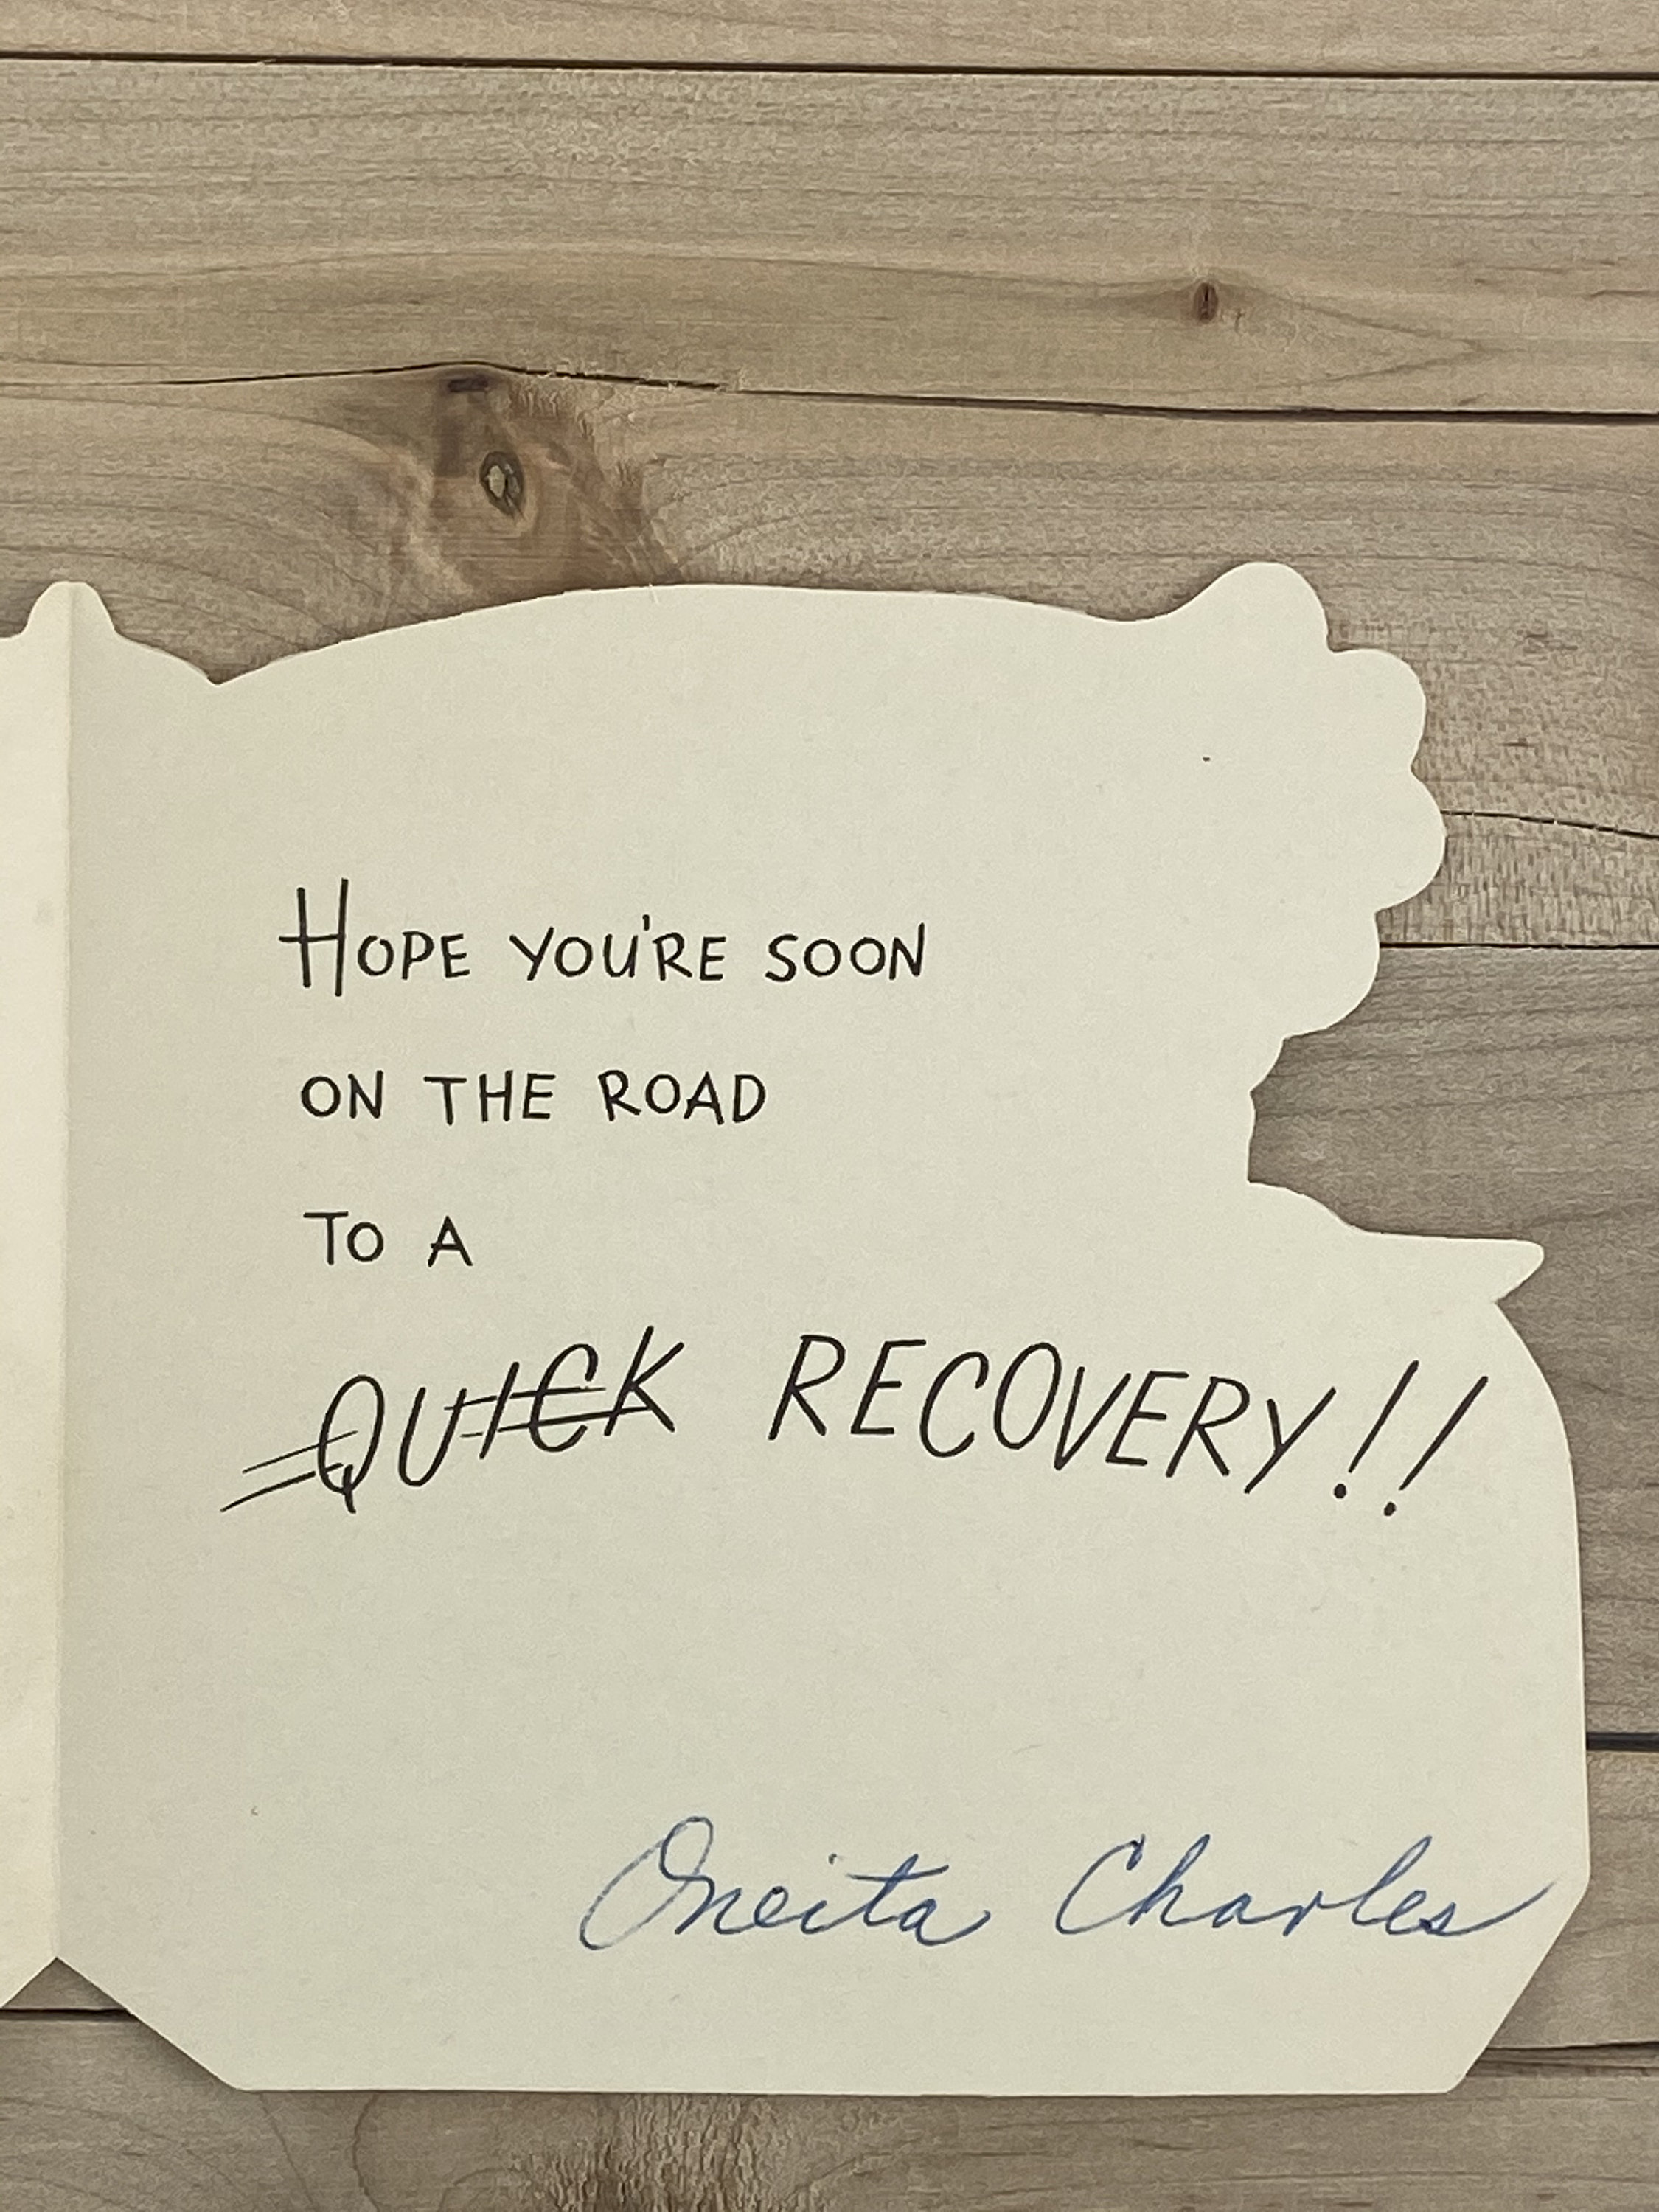 HOPE YOU'RE SOON
ON THE ROAD
TO A
QUICK RECOVERY!!
Oneita Charles